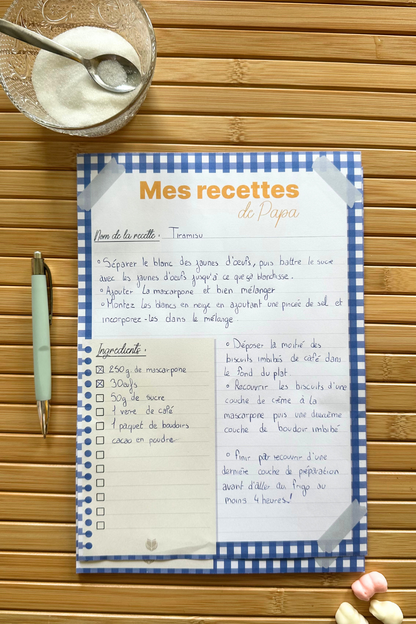 Mes recettes
de Papa
Nom de la recette : Tiramisu
° Séparer le blanc des jaunes d'œufs, puis battre le sucre
avec les jaunes d'œufs jusqu'à ce que ça blanchisse.
° Ajouter la mascarpone et bien mélanger
° Montez les blancs en neige en ajoutant une pincée de sel et
incorporez-les dans le mélange
Ingrédients :
250g de mascarpone
3 œufs
50g de sucre
1 verre de café
1 paquet de boudoirs
cacao en poudre
° Déposer la moitié des
biscuits imbibés de café dans
le fond du plat.
° Recouvrir les biscuits d'une
couche de crème à la
mascarpone puis une deuxième
couche de boudoir imbibé
° Finir par recouvrir d'une
dernière couche de préparation
avant d'aller au frigo au
moins 4 heures!